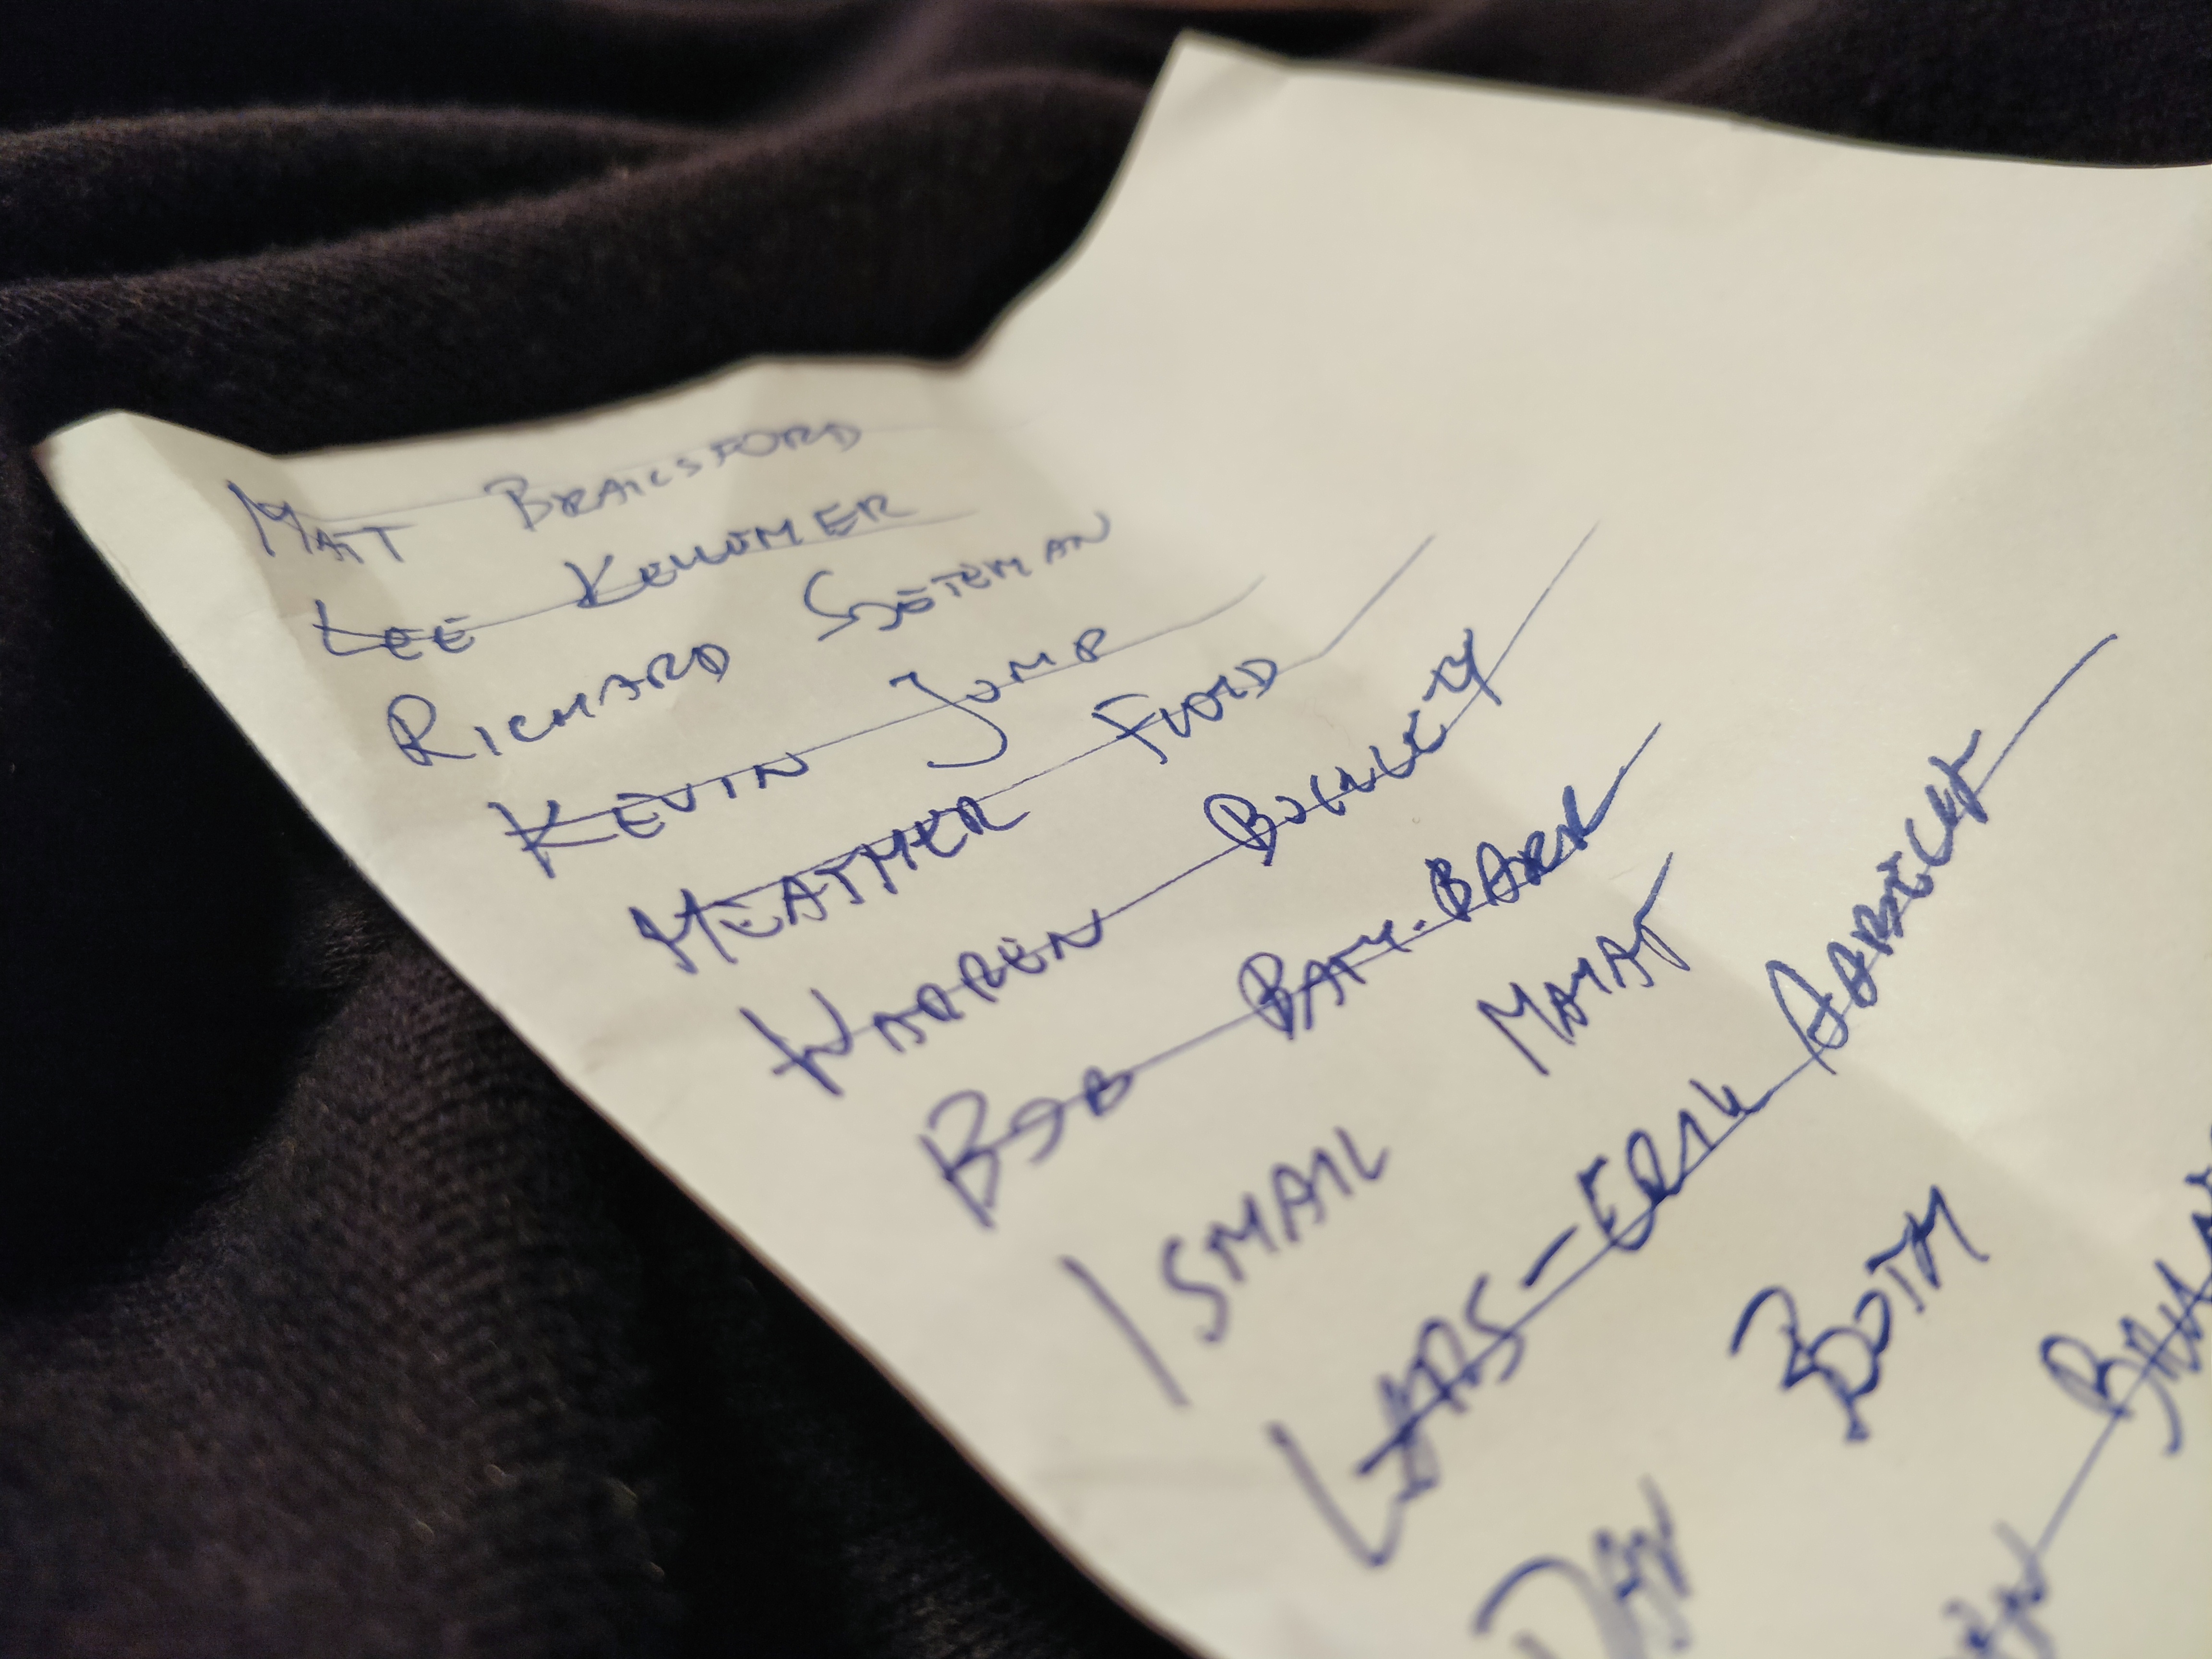 MATT BRAILSFORD
LEE KELLEHER
RICHARD SOETEMAN
KEVIN JUMP
HEATHER FLOYD
WARREN BUCKLEY
BOB BATY-BARR
ISMAIL MAYAT
LARS-ERIK AABRICHT
DAN BOOTH